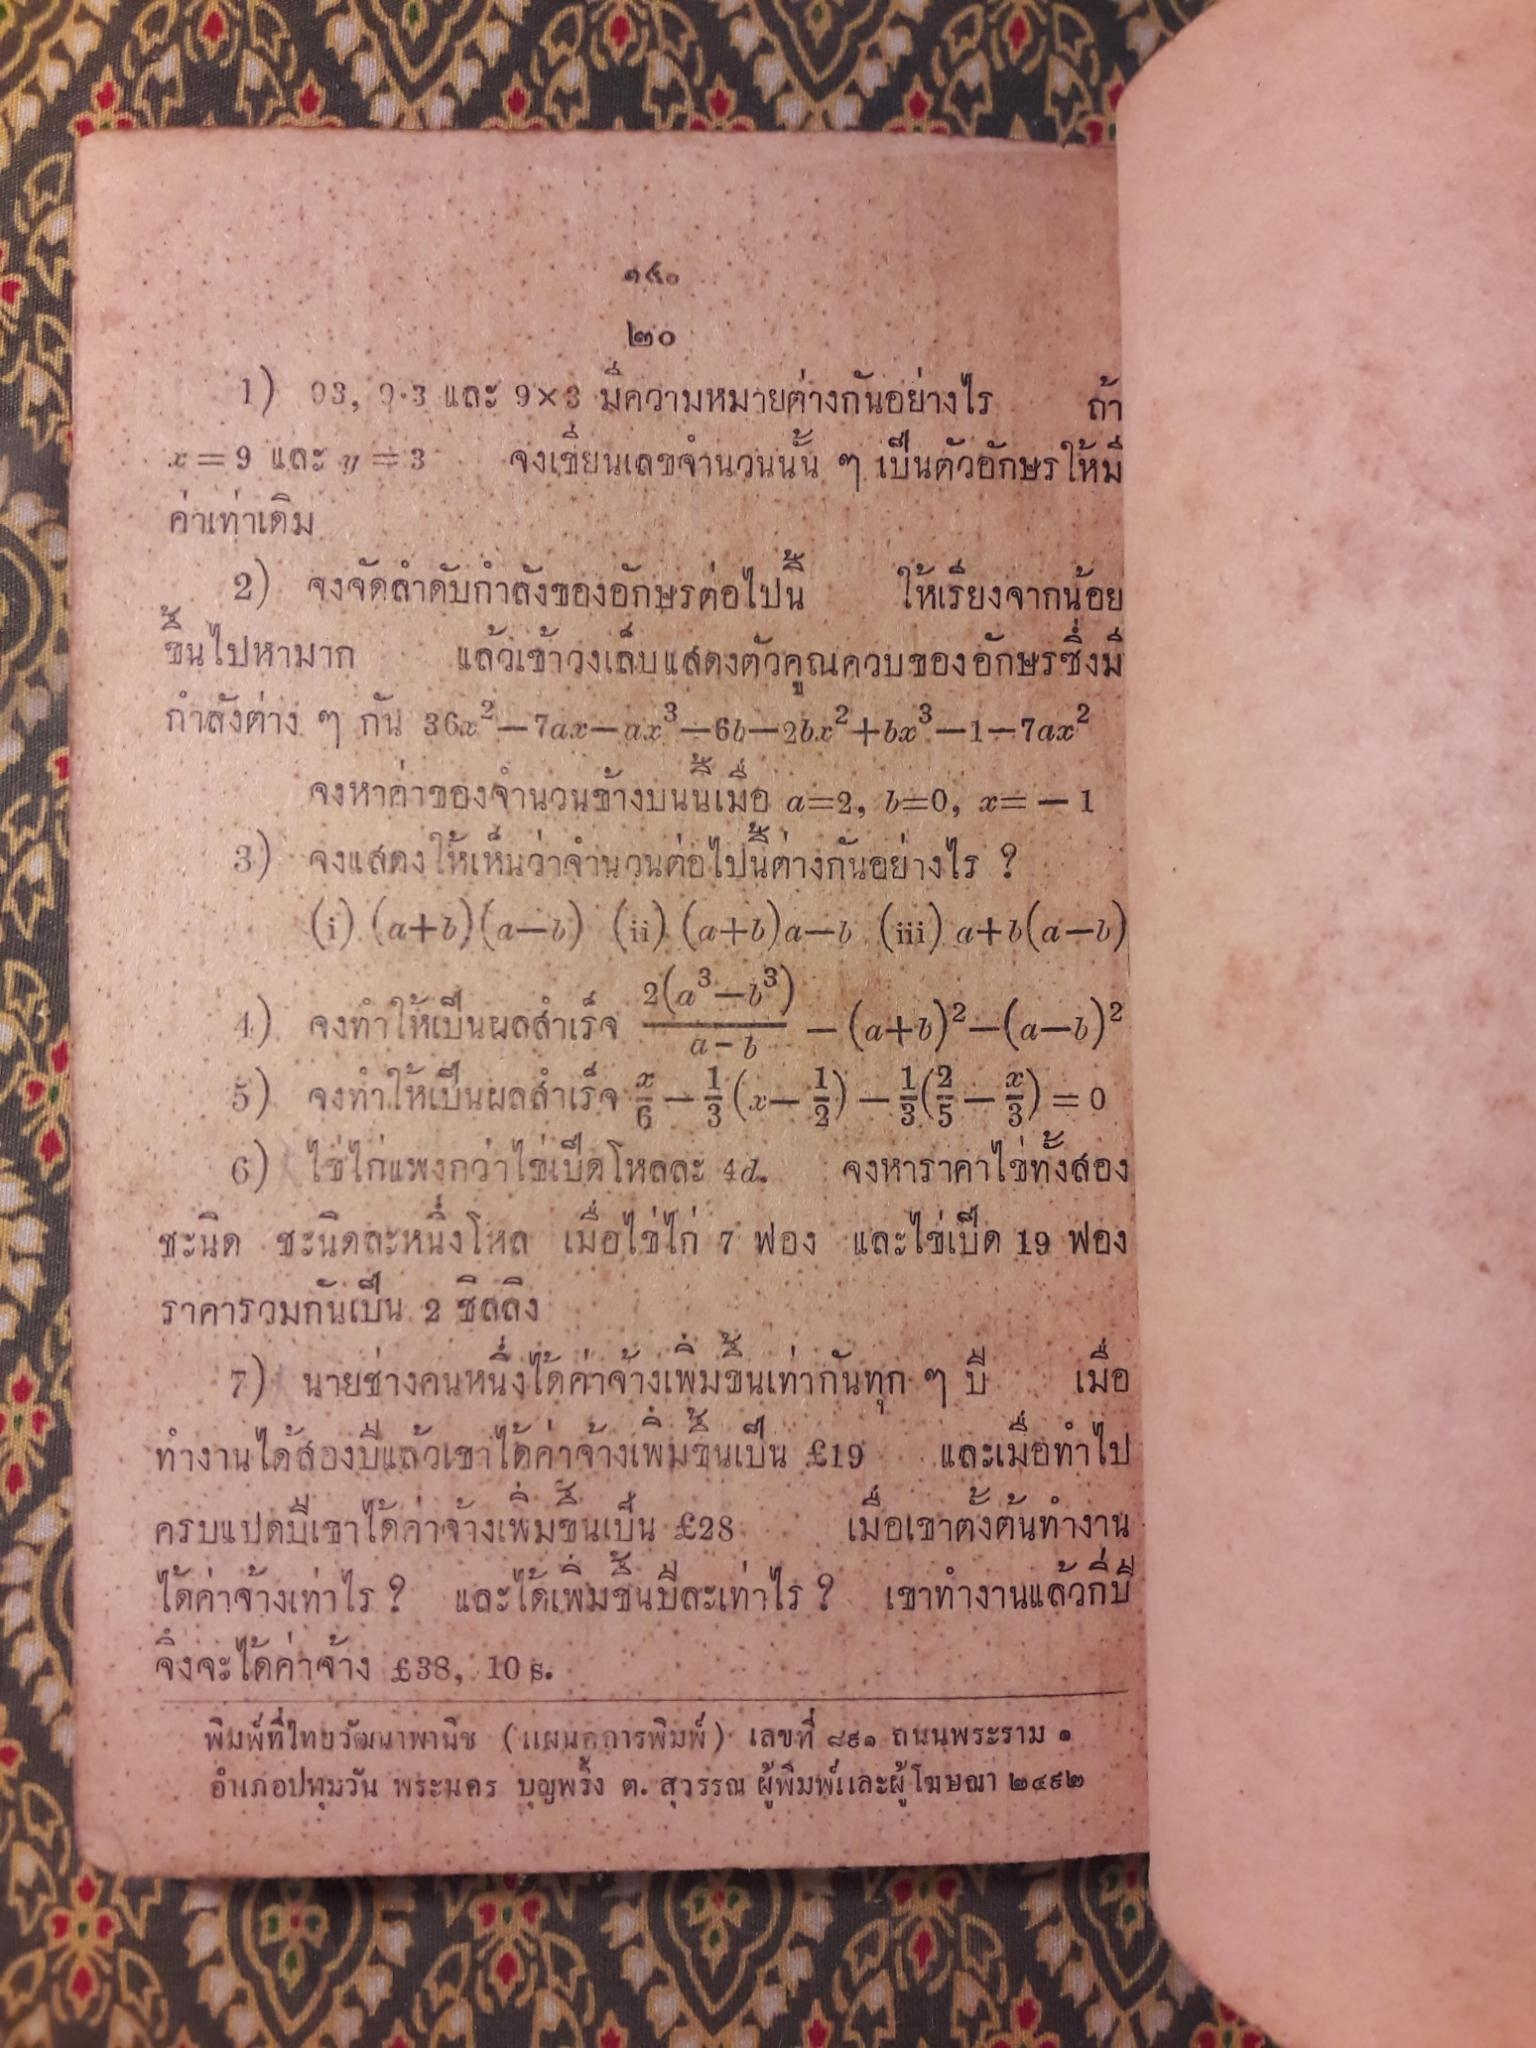 ๑๔๐
๒๐
1) 93, 9·3 และ 9×3 มีความหมายต่างกันอย่างไร ถ้า
x = 9 และ y = 3 จงเขียนเลขจำนวนนั้น ๆ เป็นตัวอักษรให้มี
ค่าเท่าเดิม
2) จงจัดลำดับกำลังของอักษรต่อไปนี้ ให้เรียงจากน้อย
ขึ้นไปหามาก แล้วเข้าวงเล็บแสดงตัวคูณควบของอักษรซึ่งมี
กำลังต่าง ๆ กัน 36x²−7ax−ax³−6b−2bx²+bx³−1−7ax²
จงหาค่าของจำนวนข้างบนนี้เมื่อ a=2, b=0, x=−1
3) จงแสดงให้เห็นว่าจำนวนต่อไปนี้ต่างกันอย่างไร ?
(i) (a+b)(a−b) (ii) (a+b)a−b (iii) a+b(a−b)
4) จงทำให้เป็นผลสำเร็จ 2(a³−b³)/(a−b) − (a+b)²−(a−b)²
5) จงทำให้เป็นผลสำเร็จ x/6 − 1/3(x−1/2) − 1/3(2/5 − x/3) = 0
6) ไข่ไก่แพงกว่าไข่เป็ดโหลละ 4d. จงหาราคาไข่ทั้งสอง
ชะนิด ชะนิดละหนึ่งโหล เมื่อไข่ไก่ 7 ฟอง และไข่เป็ด 19 ฟอง
ราคารวมกันเป็น 2 ชิลลิง
7) นายช่างคนหนึ่งได้ค่าจ้างเพิ่มขึ้นเท่ากันทุก ๆ ปี เมื่อ
ทำงานได้สองปีแล้วเขาได้ค่าจ้างเพิ่มขึ้นเป็น £19 และเมื่อทำไป
ครบแปดปีเขาได้ค่าจ้างเพิ่มขึ้นเป็น £28 เมื่อเขาตั้งต้นทำงาน
ได้ค่าจ้างเท่าไร ? และได้เพิ่มขึ้นปีละเท่าไร ? เขาทำงานแล้วกี่ปี
จึงจะได้ค่าจ้าง £38, 10 s.
พิมพ์ที่ไทยวัฒนาพานิช (แผนกการพิมพ์) เลขที่ ๘๙๑ ถนนพระราม ๑
อำเภอปทุมวัน พระนคร บุญพริ้ง ต. สุวรรณ ผู้พิมพ์และผู้โฆษณา ๒๔๙๒